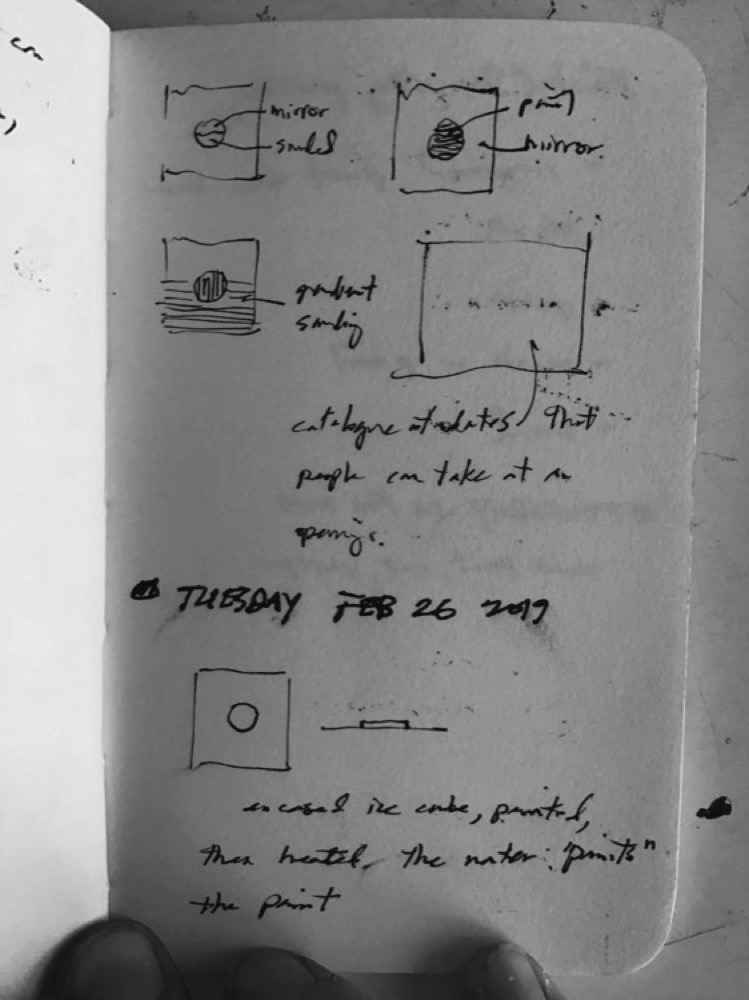 mirror
sanded
paint
mirror
gradient
sanding
catalogue that
people can take at an
openings.
TUESDAY FEB 26 2019
encased ice cube, painted,
then heated. the water "paints"
the paint